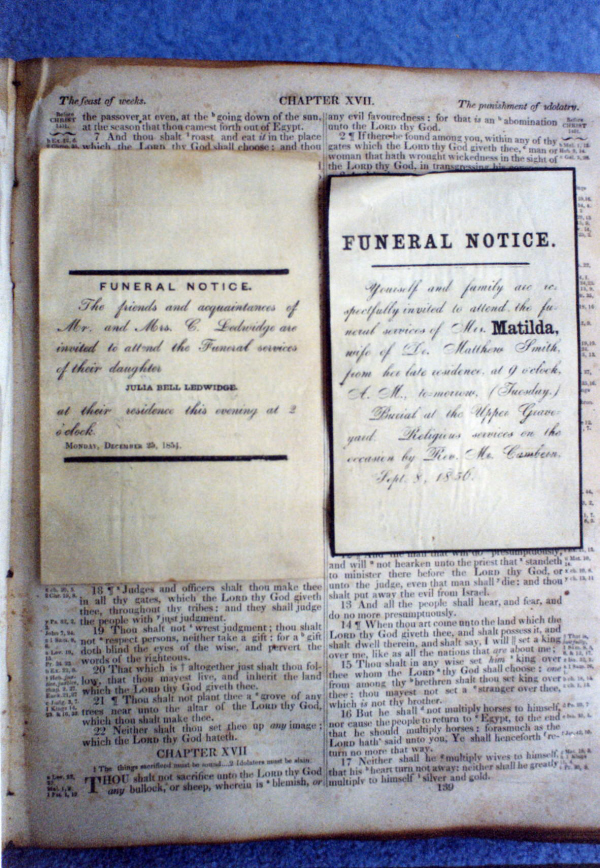 The feast of weeks.
CHAPTER XVII.
The punishment of idolatry.
the passover at even, at the going down of the sun,
at the season that thou camest forth out of Egypt.
7 And thou shalt roast and eat it in the place
which the LORD thy God shall choose: and thou
FUNERAL NOTICE.
The friends and acquaintances of
Mr. and Mrs. C. Ledwidge are
invited to attend the Funeral services
of their daughter
JULIA BELL LEDWIDGE.
at their residence this evening at 2
o'clock.
MONDAY, DECEMBER 25, 1854.
18 ¶ Judges and officers shalt thou make thee
in all thy gates, which the LORD thy God giveth
thee, throughout thy tribes: and they shall judge
the people with just judgment.
19 Thou shalt not wrest judgment; thou shalt
not respect persons, neither take a gift: for a gift
doth blind the eyes of the wise, and pervert the
words of the righteous.
20 That which is altogether just shalt thou fol-
low, that thou mayest live, and inherit the land
which the LORD thy God giveth thee.
21 ¶ Thou shalt not plant thee a grove of any
trees near unto the altar of the LORD thy God,
which thou shalt make thee.
22 Neither shalt thou set thee up any image;
which the LORD thy God hateth.
CHAPTER XVII
1 The things sacrificed must be sound. 2 Idolaters must be slain.
THOU shalt not sacrifice unto the LORD thy God
any bullock, or sheep, wherein is blemish, or
any evil favouredness: for that is an abomination
unto the LORD thy God.
2 ¶ If there be found among you, within any of thy
gates which the LORD thy God giveth thee, man or
woman that hath wrought wickedness in the sight of
the LORD thy God, in transgressing his
FUNERAL NOTICE.
Yourself and family are re-
spectfully invited to attend the fu-
neral services of Mrs. Matilda,
wife of Dr. Matthew Smith,
from her late residence, at 9 o'clock,
A. M., to-morrow, (Tuesday.)
Burial at the Upper Grave-
yard. Religious services on the
occasion by Rev. Mr. Cambern.
Sept. 8, 1856.
and will not hearken unto the priest that standeth
to minister there before the LORD thy God, or
unto the judge, even that man shall die: and thou
shalt put away the evil from Israel.
13 And all the people shall hear, and fear, and
do no more presumptuously.
14 ¶ When thou art come unto the land which the
LORD thy God giveth thee, and shalt possess it, and
shalt dwell therein, and shalt say, I will set a king
over me, like as all the nations that are about me;
15 Thou shalt in any wise set him king over
thee whom the LORD thy God shall choose: one
from among thy brethren shalt thou set king over
thee: thou mayest not set a stranger over thee,
which is not thy brother.
16 But he shall not multiply horses to himself,
nor cause the people to return to Egypt, to the end
that he should multiply horses: forasmuch as the
LORD hath said unto you, Ye shall henceforth re-
turn no more that way.
17 Neither shall he multiply wives to himself,
that his heart turn not away: neither shall he greatly
multiply to himself silver and gold.
139